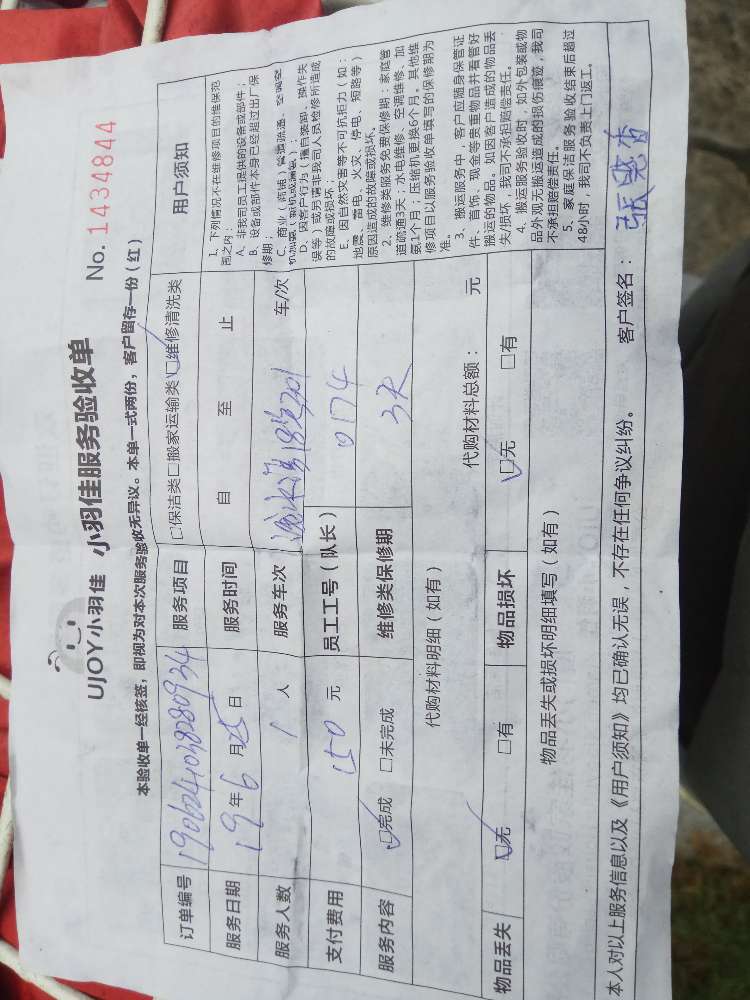 UJOY小羽佳 小羽佳服务验收单 No. 1434844
本验收单一经核签，即视为对本次服务验收无异议。本单一式两份，客户留存一份（红）
订单编号 服务项目 □保洁类□搬家运输类☑维修清洗类
服务日期 19年6月25日 服务时间 自 至 止
服务人数 1 人 服务车次 车/次
支付费用 150 元 员工工号（队长） 0174
服务内容 ☑完成 □未完成 维修类保修期 3天
代购材料明细（如有） 代购材料总额： 元
物品丢失 ☑无 □有 物品损坏 ☑无 □有
物品丢失或损坏明细填写（如有）
用户须知
1、下列情况不在维修项目的维保范
围之内：
A、非我司员工提供的设备或部件；
B、设备或部件本身已经超过出厂保
修期；
C、商业（商铺）管道疏通、空调空
D、因客户行为（擅自装卸、操作失
误等）或另请非我司人员检修所造成
的故障或损坏；
E、因自然灾害等不可抗拒力（如：
地震、雷电、火灾、停电、短路等）
原因造成的故障或损坏。
2、维修类服务免费保修期：家庭管
道疏通3天；水电维修、空调维修、加
氨1个月；压缩机更换6个月。其他维
修项目以服务验收单填写的保修期为
准。
3、搬运服务中，客户应随身保管证
件、首饰、现金等贵重物品并看管好
搬运的物品。如因客户造成的物品丢
失/损坏，我司不承担赔偿责任。
4、搬运服务验收时，如外包装或物
品外观无搬运造成的损伤痕迹，我司
不承担赔偿责任。
5、家庭保洁服务验收结束后超过
48小时，我司不负责上门返工。
本人对以上服务信息以及《用户须知》均已确认无误，不存在任何争议纠纷。 客户签名：